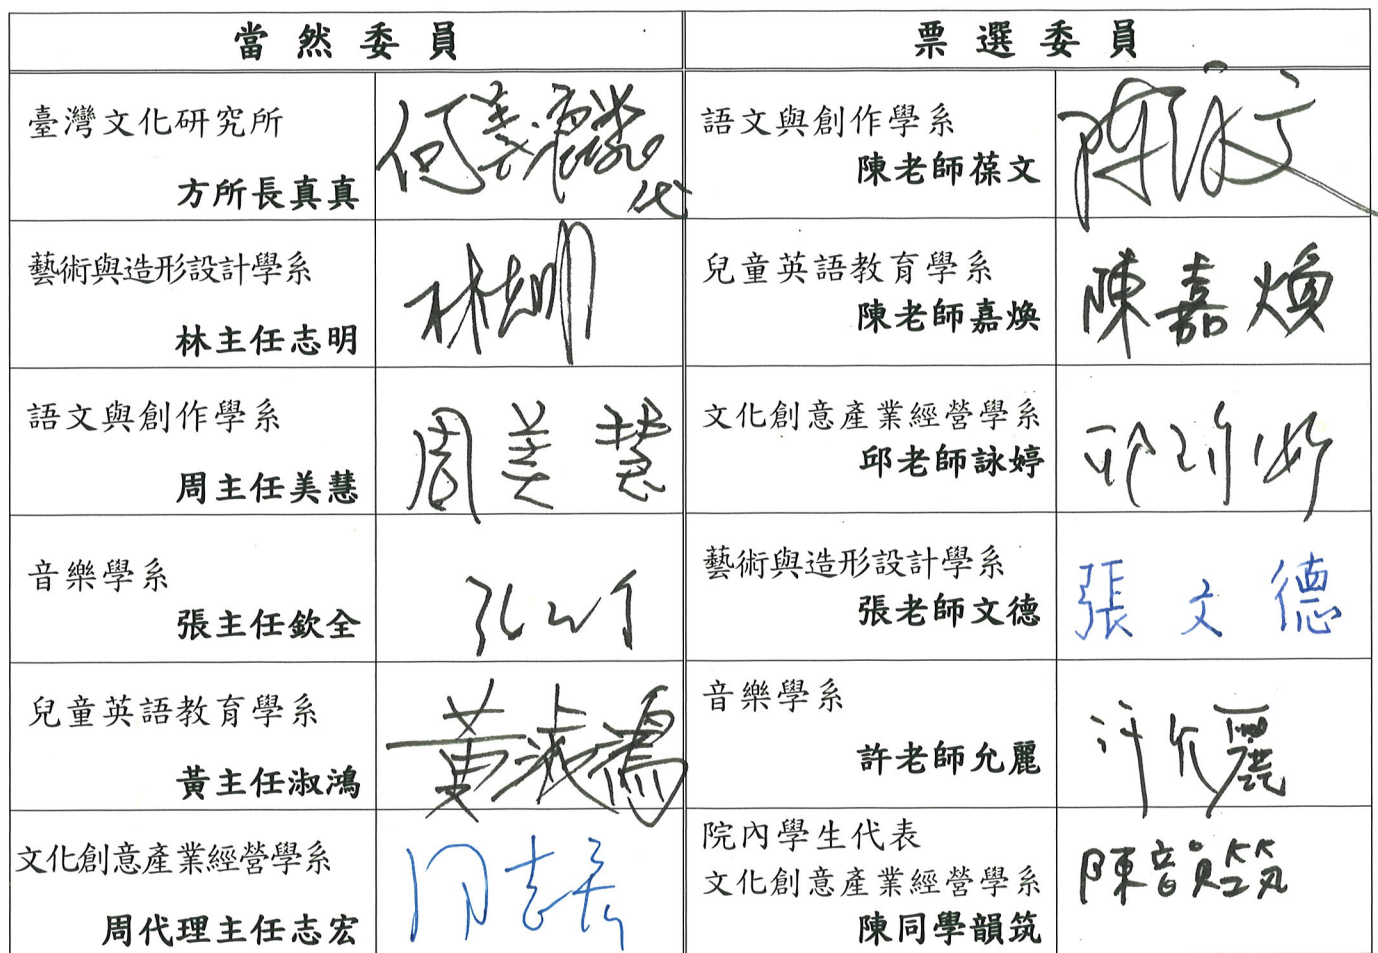 當然委員
票選委員
臺灣文化研究所
方所長真真
何義麟
代
語文與創作學系
陳老師葆文
藝術與造形設計學系
林主任志明
林志明
兒童英語教育學系
陳老師嘉煥
陳嘉煥
語文與創作學系
周主任美慧
周美慧
文化創意產業經營學系
邱老師詠婷
音樂學系
張主任欽全
藝術與造形設計學系
張老師文德
張文德
兒童英語教育學系
黃主任淑鴻
黃淑鴻
音樂學系
許老師允麗
許允麗
文化創意產業經營學系
周代理主任志宏
院內學生代表
文化創意產業經營學系
陳同學韻筑
陳韻筑